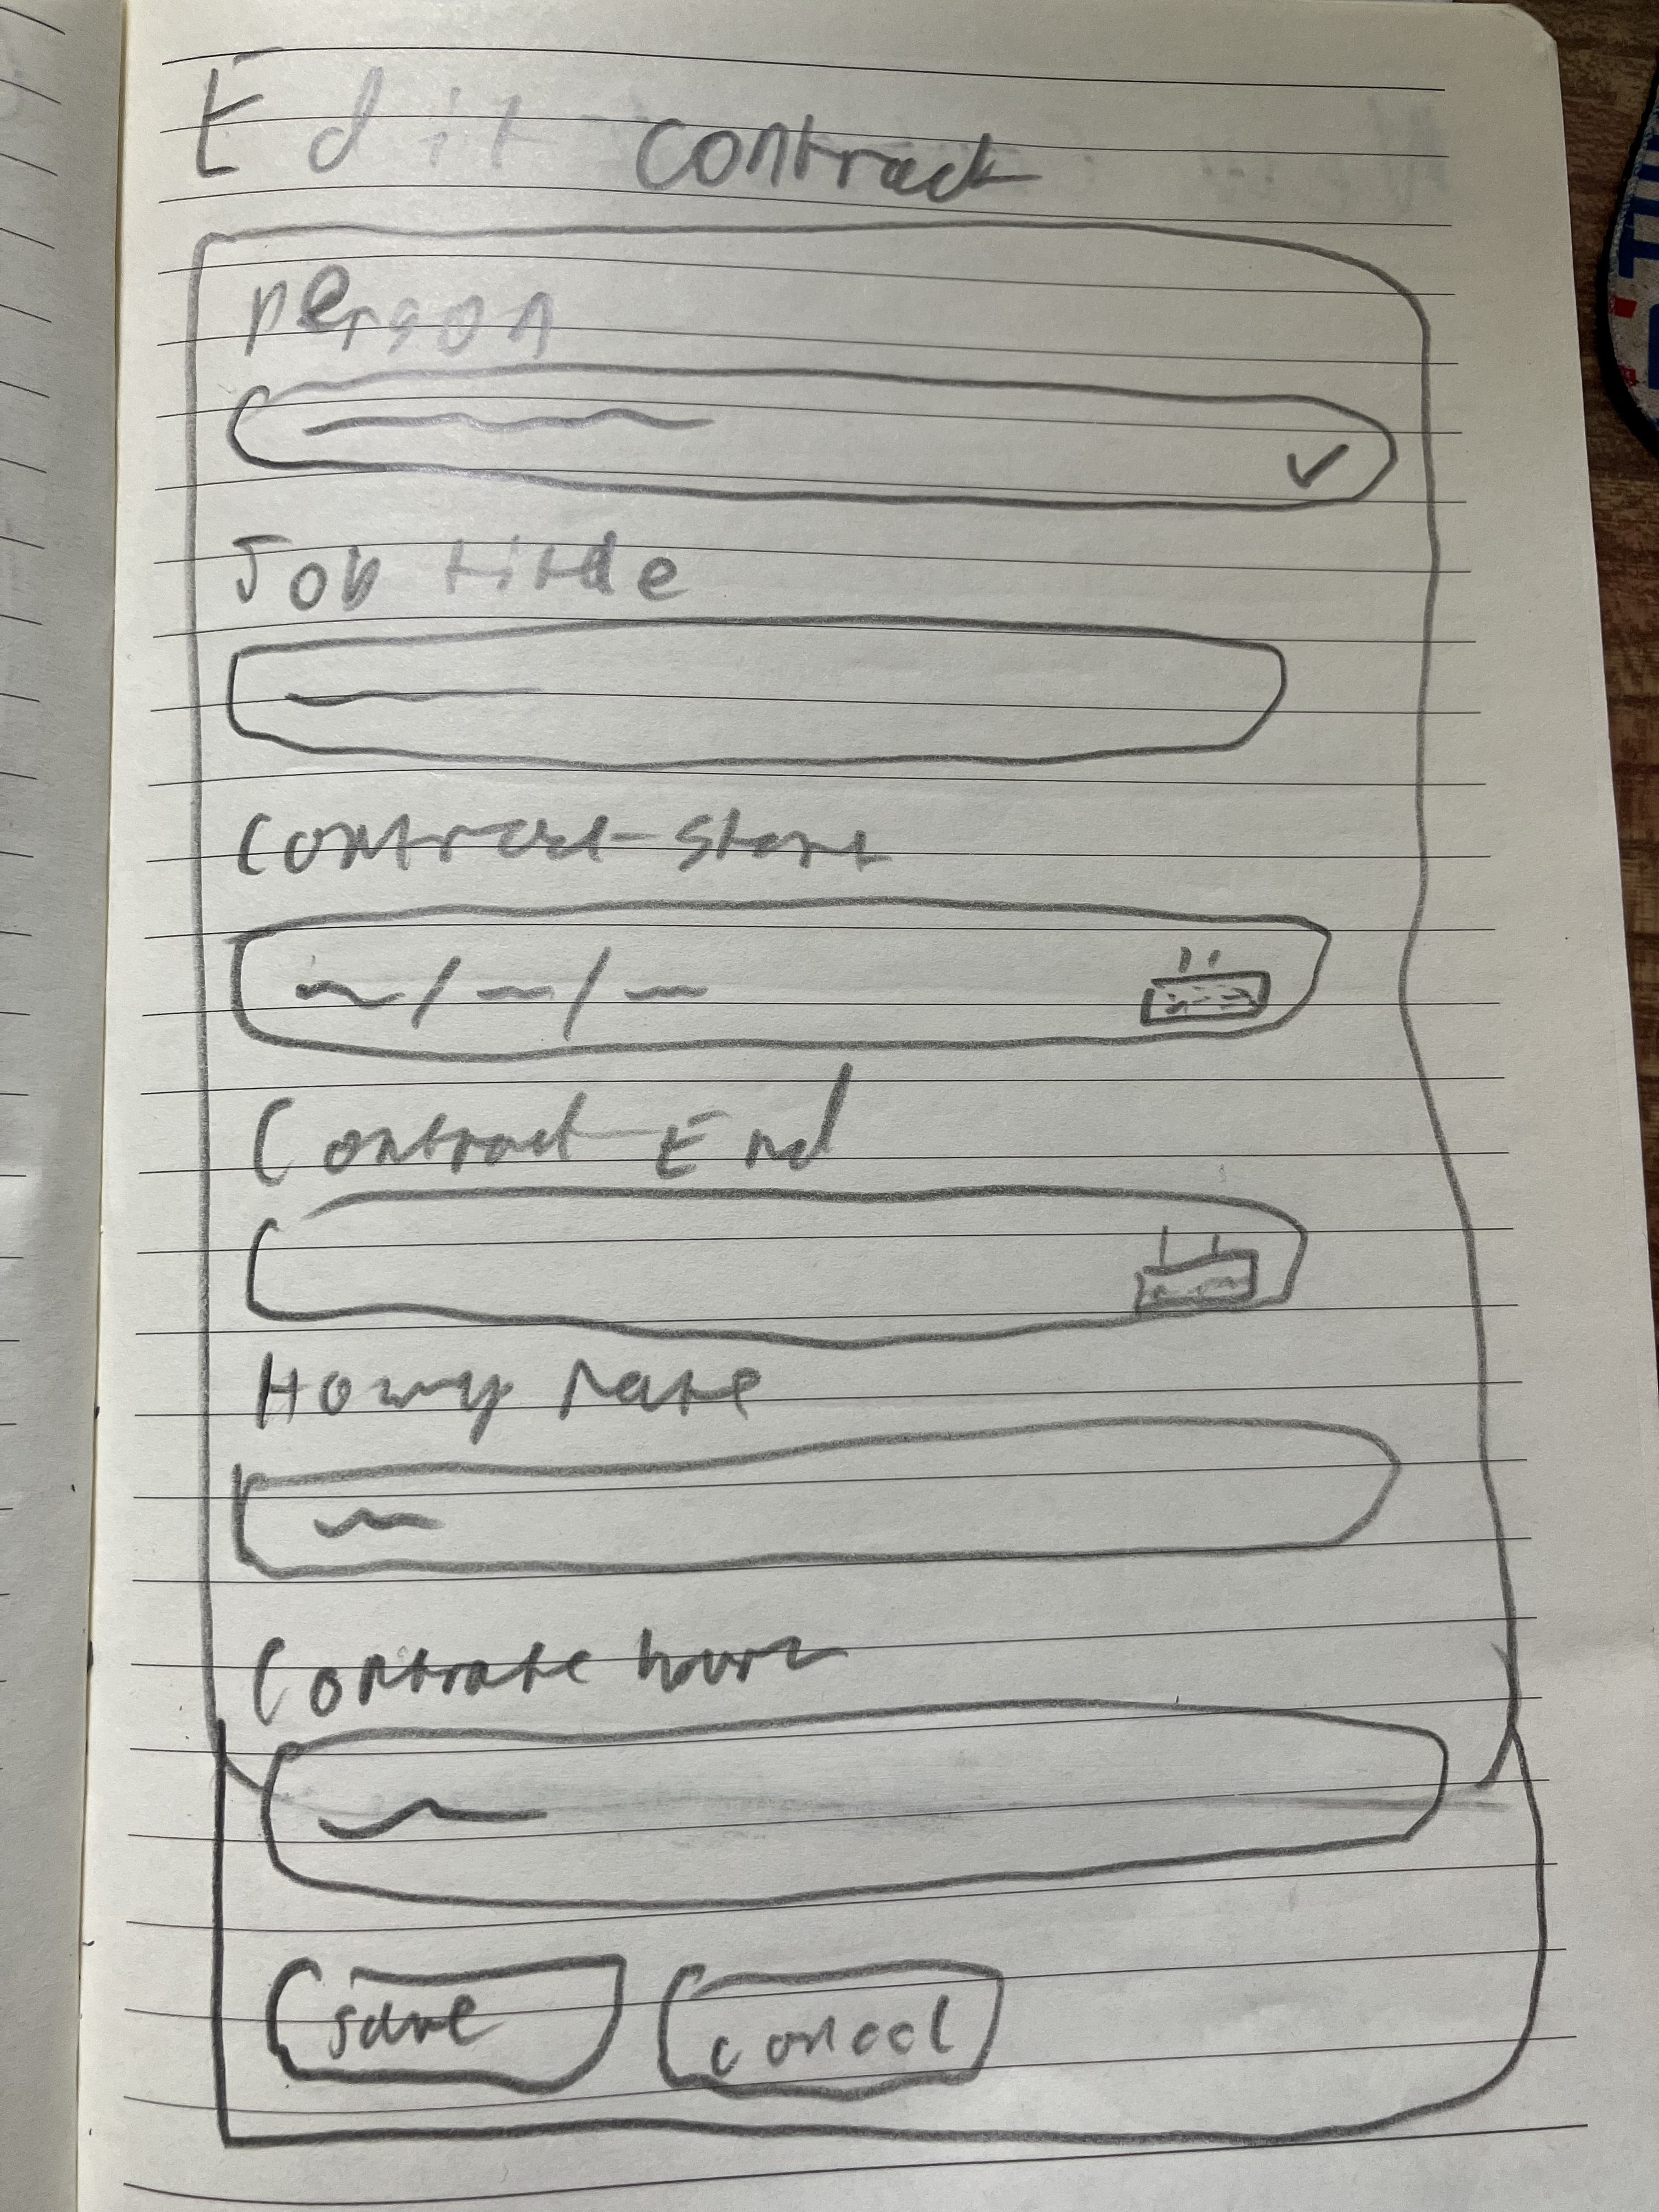 Edit contract
person
Job title
Contract start
Contract End
Hourly rate
Contrate hours
save
cancel